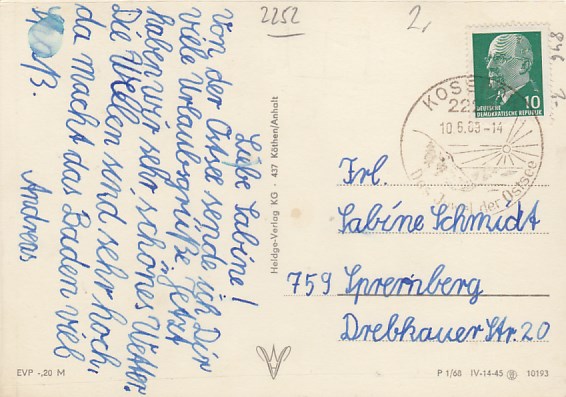 2252
2,
846
2-
Liebe Sabine!
Von der Ostsee sende ich Dir
viele Urlaubsgrüße. Jetzt
haben wir sehr schönes Wetter.
Die Wellen sind sehr hoch,
da macht das Baden viel
Spaß.
Andreas
Heldge-Verlag KG · 437 Köthen/Anhalt
DEUTSCHE
DEMOKRATISCHE REPUBLIK
10
10.6.69-14
der Ostsee
Frl.
Sabine Schmidt
759 Spremberg
Drebkauer Str. 20
EVP -,20 M
P 1/68 IV-14-45 10193